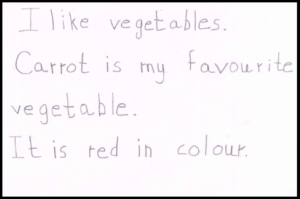 I like vegetables.
Carrot is my favourite
vegetable.
It is red in colour.